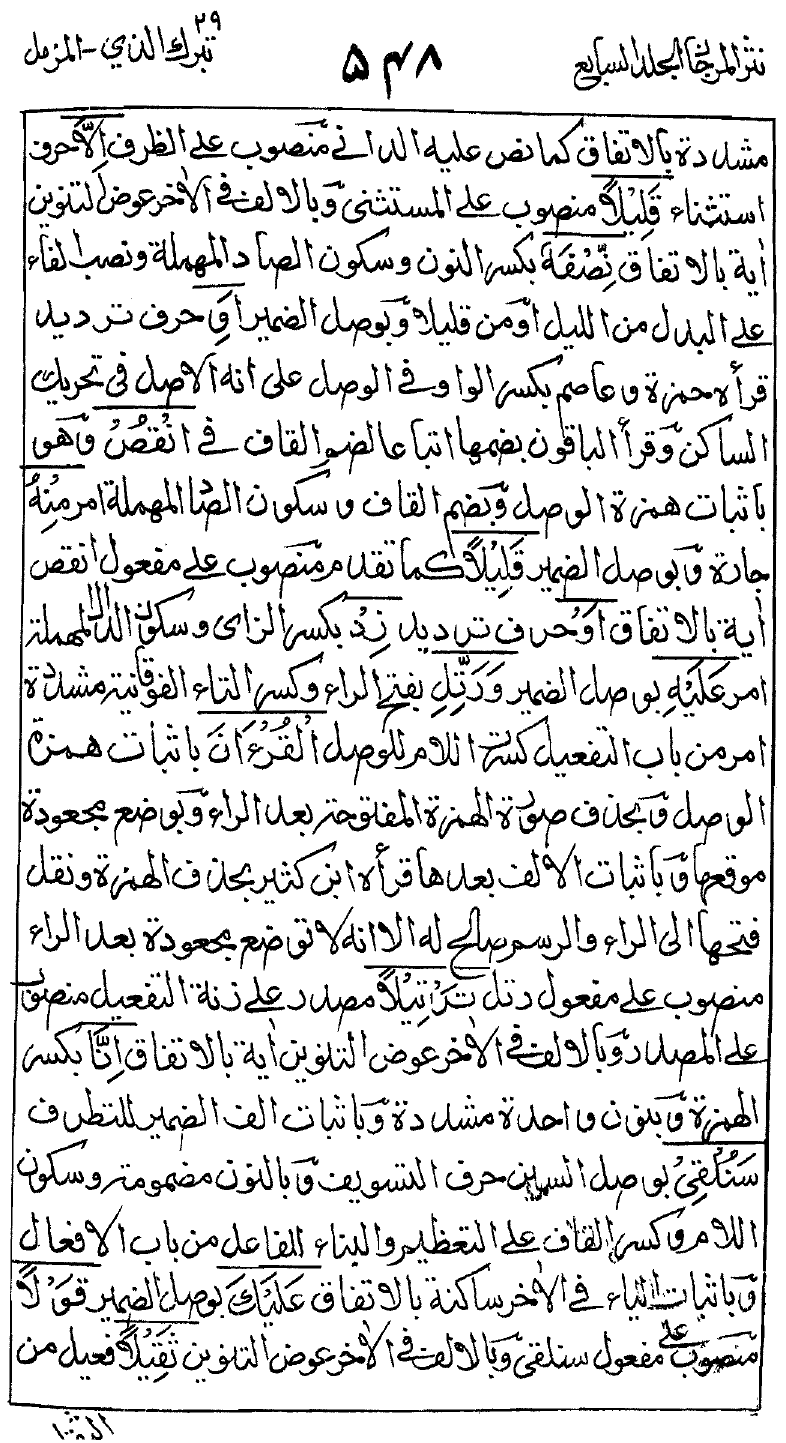 نثر المرجان المجلد السابع ۵۴۸ تبرك الذي ۲۹ - المزمل
مشددة بالاتفاق كما نص عليه الداني منصوب على الظرف اِلَّا حرف
استثناء قَلِيْلًا منصوب على المستثنى وبالالف في الاٰخر عوض التنوين
اٰية بالاتفاق نِّصْفَهٗ بكسر النون وسكون الصاد المهملة ونصب الفاء
على البدل من الليل او من قليلا وبوصل الضمير اَوِ حرف ترديد
قرأه حمزة وعاصم بكسر الواو في الوصل على انه الاصل في تحريك
الساكن وقرأ الباقون بضمها اتباعا لضم القاف في انْقُصْ وهو
باثبات همزة الوصل وبضم القاف وسكون الصاد المهملة امر مِنْهُ
جارة وبوصل الضمير قَلِيْلًا كما تقدم منصوب على مفعول انقص
اٰية بالاتفاق اَوْ حرف ترديد زِدْ بكسر الزاى وسكون الدال المهملة
امر عَلَيْهِ بوصل الضمير وَرَتِّلِ بفتح الراء وكسر التاء الفوقانية مشددة
امر من باب التفعيل كسرت اللام للوصل الْقُرْءَانَ باثبات همزة
الوصل وبحذف صورة الهمزة المفتوحة بعد الراء وبوضع مجعودة
موقعها وباثبات الالف بعدها قرأه ابن كثير بحذف الهمزة ونقل
فتحها الى الراء والرسم صالح له الا انه لا توضع مجعودة بعد الراء
منصوب على مفعول رتل تَرْتِيْلًا مصدر على زنة التفعيل منصوب
على المصدر وبالالف في الاٰخر عوض التنوين اٰية بالاتفاق اِنَّا بكسر
الهمزة وبنون واحدة مشددة وباثبات الف الضمير للتطرف
سَنُلْقِيْ بوصل السين حرف التسويف وبالنون مضمومة وسكون
اللام وكسر القاف على التعظيم والبناء الفاعل من باب الافعال
وباثبات الياء في الاٰخر ساكنة بالاتفاق عَلَيْكَ بوصل الضمير قَوْلًا
منصوب على مفعول سنلقي وبالالف في الاٰخر عوض التنوين ثَقِيْلًا فعيل من